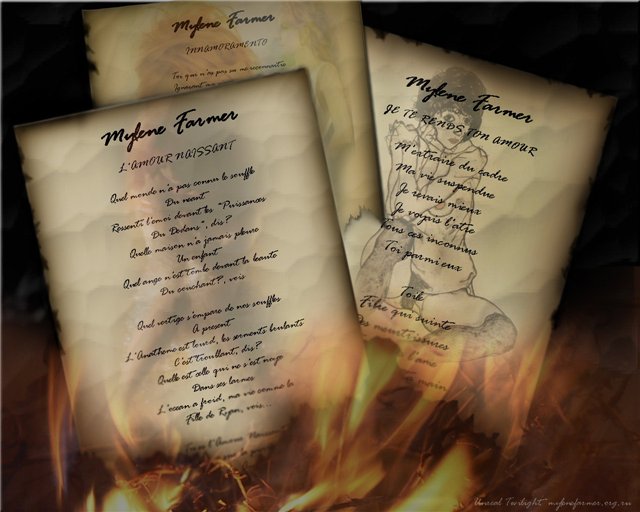 Mylene Farmer
INNAMORAMENTO
Toi qui n'as pas su me reconnaitre
Ignorant ma
Mylene Farmer
L'AMOUR NAISSANT
Quel monde n'a pas connu le souffle
Du neant
Ressenti l'emoi devant les "Puissances
Du Dedans", dis?
Quelle maison n'a jamais pleure
Un enfant
Quel ange n'est tombe devant la beaute
Du couchant?, vois
Quel vertige s'empare de nos souffles
A present
L'Anatheme est lourd, les serments brulants
C'est troublant, dis?
Quelle est celle qui ne s'est noye
Dans ses larmes
L'ocean a froid, ma vie comme la
Fille de Ryan, vois...
l'Amour Naissant
Mylene Farmer
JE TE RENDS TON AMOUR
M'extraire du cadre
Ma vie suspendue
Je revais mieux
Je voyais l'atre
Tous ces inconnus
Toi parmi eux
Toile
Fibre qui suinte
Des meurtrissures
l'ame
main
Unreal Twilight mylenefarmer.org.ru